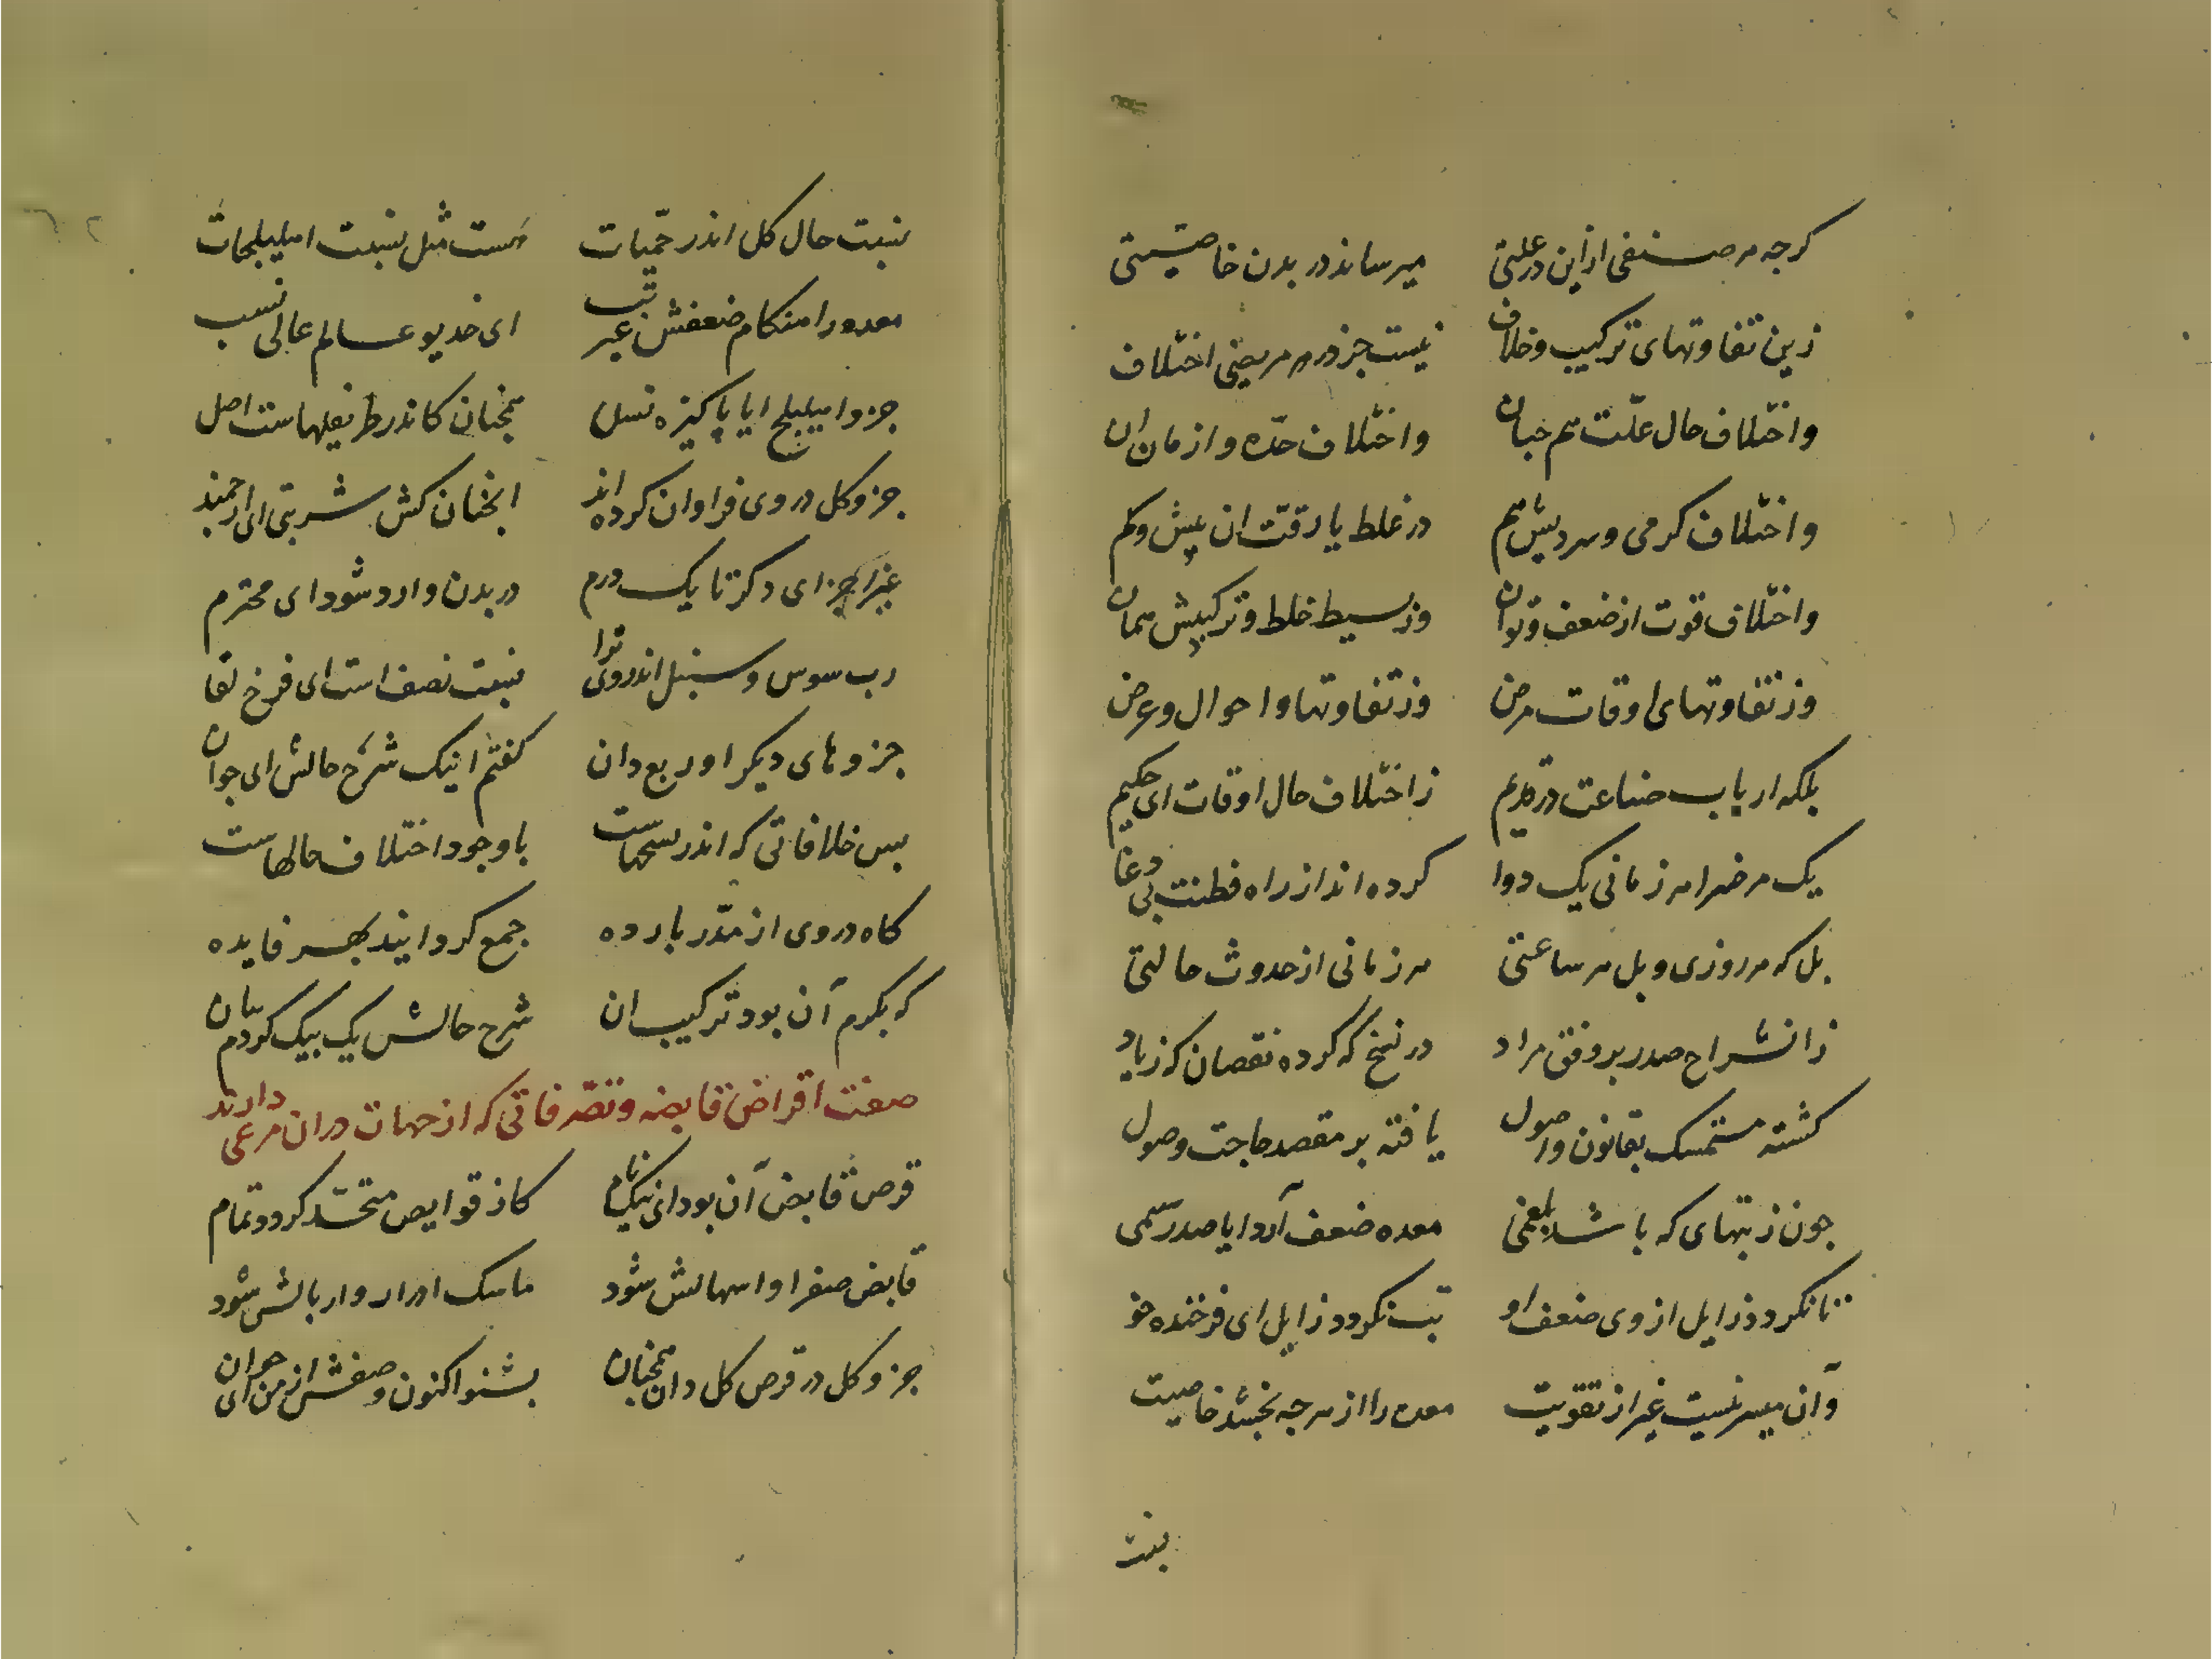 کرجه هر صنفی ازین در علتی میرساند در بدن خاصیتی
زین تفاوتهای ترکیب وخلاف نیست جز در هر مریضی اختلاف
واختلاف حال علّت هم جنان واختلاف حدّه وازمان ان
واختلاف کرمی وسردیش هم در غلط یا رقّت ان پیش وکم
واختلاف قوت از ضعف وتوان وز بسیط خلط وترکیبش همان
وز تفاوتهای اوقات مرض وز تفاوتها واحوال وعرض
بلکه ارباب صناعت در قدیم ز اختلاف حال اوقات ای حکیم
یک مرضرا هر زمانی یک دوا کرده اند از راه فطنت بی دغا
بل که هر روزی وبل هر ساعتی هر زمانی از حدوث حالتی
ز انشراح صدر بر وفق مراد در نسخ که کرده نقصان که زیاد
کشته مستمسک بقانون واصول یافته بر مقصد حاجت وصول
جون ز تبهای که باشد بلغمی معده ضعف آرد ایا صدر سمی
تا نکردد زایل از وی ضعف او تب نکردد زایل ای فرخنده خو
وآن میسر نیست غیر از تقویت معده را از هر جه بخشد خاصیت
نسبت حال کل اندر حمّیات هست مثل نسبت اهلیلجات
معده را هنکام ضعفش غیر تب ای خدیو عالم عالی نسب
جزو اهلیلج ایا پاکیزه نسل همجنان کاندر طریفلهاست اصل
جزو کل در وی فراوان کرده اند انجنان کش شربتی ای ارجمند
غیر اجزای دکر تا یک درم در بدن وارد شود ای محترم
رب سوس وسنبل اندر وی ترا نسبت نصف است ای فرخ لقا
جزوهای دیکر اورا ربع دان کفتم اینک شرح حالش ای جوان
پس خلافاتی که اندر نسخهاست با وجود اختلاف حالهاست
کاه در وی از مدّر بارده جمع کردانید بهر فایده
که بکرم آن بود ترکیب ان شرح حالش یک بیک کردم بیان
صفت اقراض قابضه وتصّرفاتی که از جهات دران مرعی دارند
قرص قابض آن بود ای نیکنام کاز قوابض متحّد کردد تمام
قابض صفرا واسهالش شود ماسک ادرار وادبالش شود
جزو کل در قرص کل دان همجنان بشنو اکنون وصفش از من ای جوان
نسبت